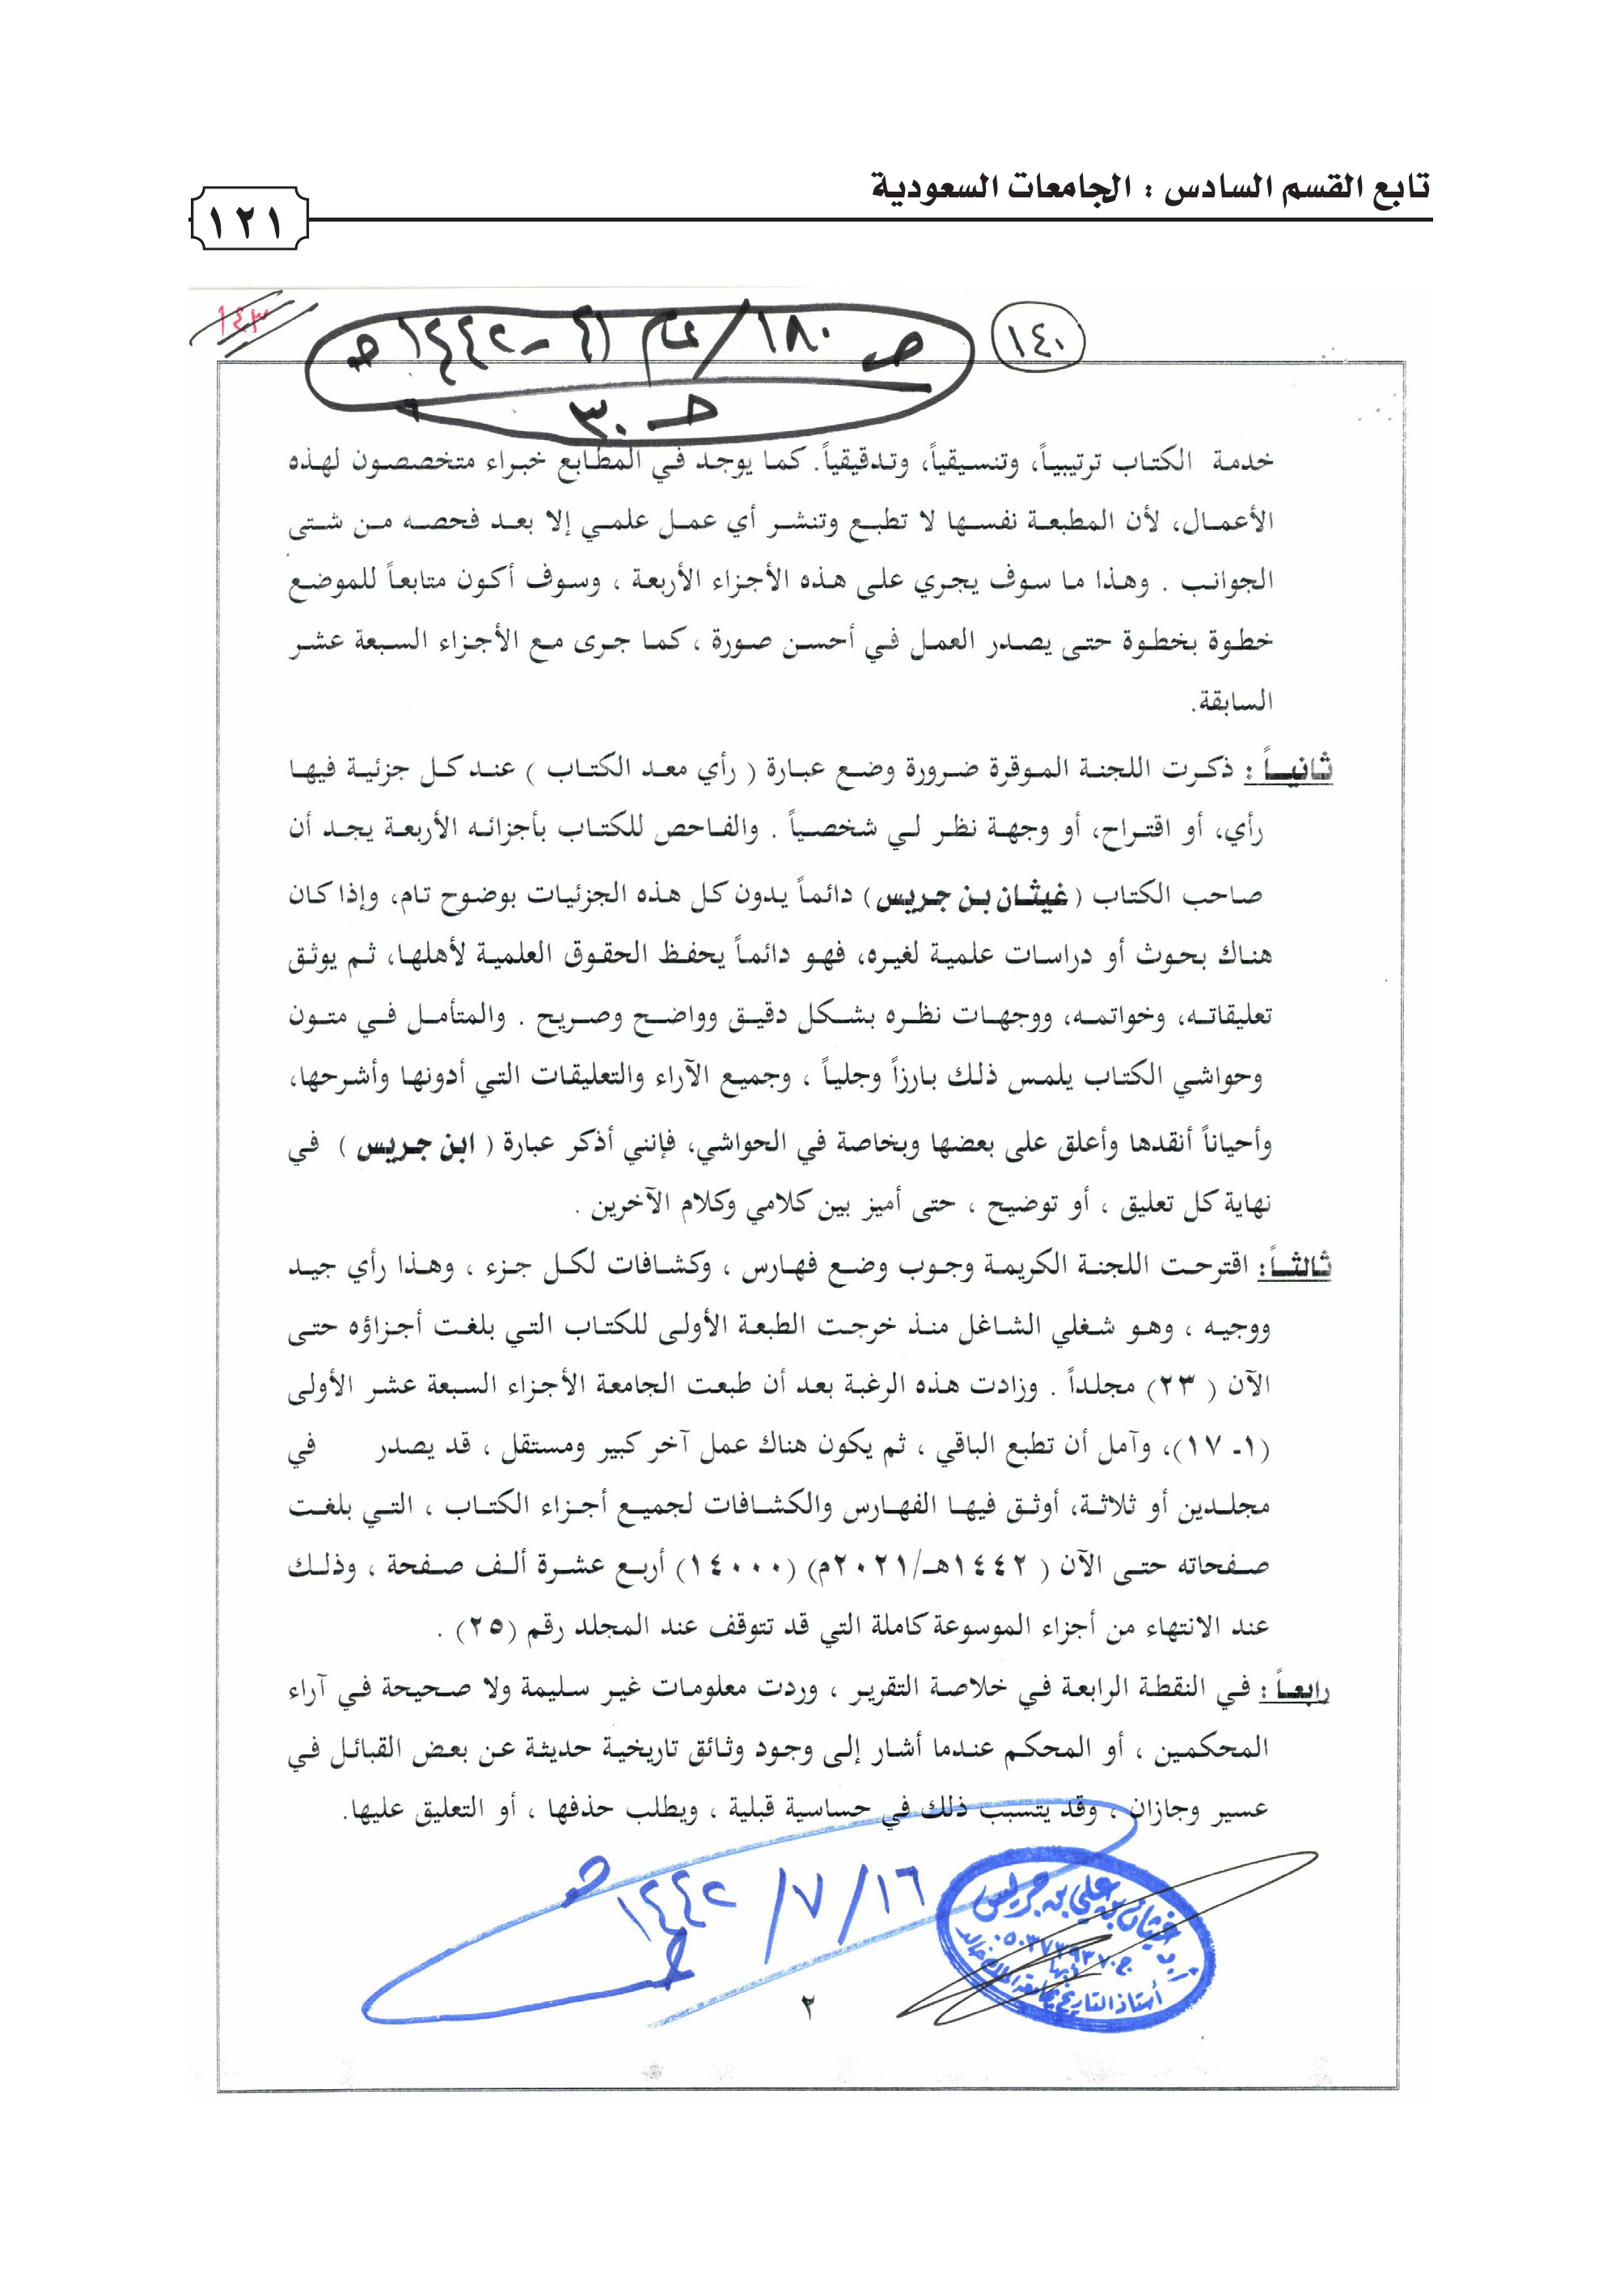 تابع القسم السادس : الجامعات السعودية
١٢١
١٤٣
١٤٠
ص ١٨٠/ عام ٤١ - ١٤٤٢هـ
حـ ٣٠
خدمة الكتاب ترتيبياً، وتنسيقياً، وتدقيقياً. كما يوجد في المطابع خبراء متخصصون لهذه
الأعمال، لأن المطبعة نفسها لا تطبع وتنشر أي عمل علمي إلا بعد فحصه من شتى
الجوانب . وهذا ما سوف يجري على هذه الأجزاء الأربعة ، وسوف أكون متابعاً للموضع
خطوة بخطوة حتى يصدر العمل في أحسن صورة ، كما جرى مع الأجزاء السبعة عشر
السابقة.
ثانياً : ذكرت اللجنة الموقرة ضرورة وضع عبارة ( رأي معد الكتاب ) عند كل جزئية فيها
رأي، أو اقتراح، أو وجهة نظر لي شخصياً . والفاحص للكتاب بأجزائه الأربعة يجد أن
صاحب الكتاب (غيثان بن جريس) دائماً يدون كل هذه الجزئيات بوضوح تام، وإذا كان
هناك بحوث أو دراسات علمية لغيره، فهو دائماً يحفظ الحقوق العلمية لأهلها، ثم يوثق
تعليقاته، وخواتمه، ووجهات نظره بشكل دقيق وواضح وصريح . والمتأمل في متون
وحواشي الكتاب يلمس ذلك بارزاً وجلياً ، وجميع الآراء والتعليقات التي أدونها وأشرحها،
وأحياناً أنقدها وأعلق على بعضها وبخاصة في الحواشي، فإنني أذكر عبارة ( ابن جريس ) في
نهاية كل تعليق ، أو توضيح ، حتى أميز بين كلامي وكلام الآخرين .
ثالثاً: اقترحت اللجنة الكريمة وجوب وضع فهارس ، وكشافات لكل جزء ، وهذا رأي جيد
ووجيه ، وهو شغلي الشاغل منذ خرجت الطبعة الأولى للكتاب التي بلغت أجزاؤه حتى
الآن ( ٢٣) مجلداً . وزادت هذه الرغبة بعد أن طبعت الجامعة الأجزاء السبعة عشر الأولى
(١ـ ١٧)، وآمل أن تطبع الباقي ، ثم يكون هناك عمل آخر كبير ومستقل ، قد يصدر في
مجلدين أو ثلاثة، أوثق فيها الفهارس والكشافات لجميع أجزاء الكتاب ، التي بلغت
صفحاته حتى الآن ( ١٤٤٢هـ/٢٠٢١م) (١٤٠٠٠) أربع عشرة ألف صفحة ، وذلك
عند الانتهاء من أجزاء الموسوعة كاملة التي قد تتوقف عند المجلد رقم (٢٥) .
رابعاً : في النقطة الرابعة في خلاصة التقرير ، وردت معلومات غير سليمة ولا صحيحة في آراء
المحكمين ، أو المحكم عندما أشار إلى وجود وثائق تاريخية حديثة عن بعض القبائل في
عسير وجازان ، وقد يتسبب ذلك في حساسية قبلية ، ويطلب حذفها ، أو التعليق عليها.
١٦/٧/١٤٤٢هـ
أ.د غيثان بن علي بن جريس
ج ٠٥٠٣٧٣٩٣٧٠
أبها
أستاذ التاريخ بجامعة الملك خالد
٢